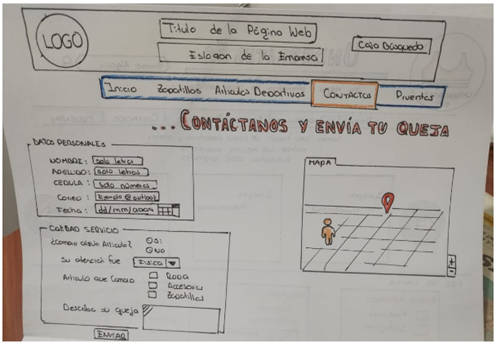 LOGO
Título de la Página Web
Eslogan de la Empresa
Caja Búsqueda
Inicio Zapatillas Artículos Deportivos CONTACTOS Proventas
... CONTÁCTANOS Y ENVÍA TU QUEJA
DATOS PERSONALES
NOMBRE: Solo letras
APELLIDO: Solo letras
CEDULA: Solo números
CORREO: Ejemplo@outlook
FECHA: dd/mm/aaaa
MAPA
CALIDAD SERVICIO
¿Compro algún Artículo? Si
NO
Su atención fue
Artículo que Compro Ropa
Accesorios
Zapatillas
Describa su queja
ENVIAR
+
-